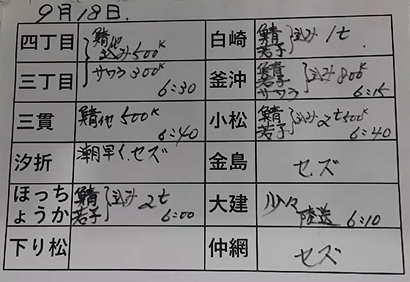 9月18日.
四丁目 鯖他 込み500K
白崎 鯖 若子 込み1t
三丁目 サワラ300K 6:30
釜沖 鯖 若子 サワラ 込み800K 6:15
三貫 鯖他500K 6:40
小松 鯖 若子 込み2t500K 6:40
汐折 潮早く、セズ
金島 セズ
ほっちょうか 鯖 若子 込み2t 6:00
大建 少々 陸送 6:10
下り松
仲網 セズ